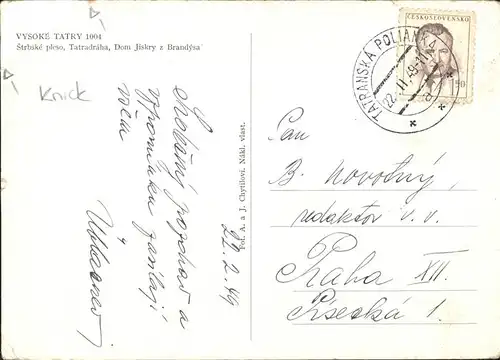 VYSOKÉ TATRY 1004
Štrbské pleso, Tatradráha, Dom Jiskry z Brandýsa
Knick
Srdečný pozdrav a
vzpomínku zasílají
22. 2. 49
Fot. A. a J. Chytilovi. Nákl. vlast.
ČESKOSLOVENSKO
1.50
TATRANSKÁ POLIANKA
22. II. 49-11
Pan
B. Novotný,
redaktor v. v.
Praha XII.
Písecká 1.